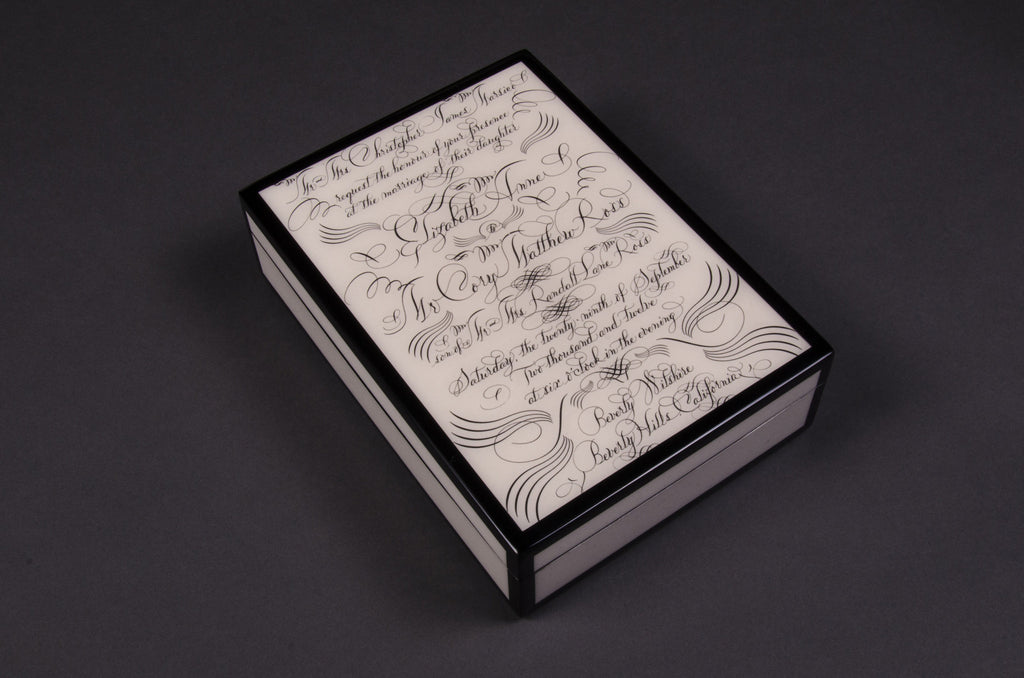 Mr. & Mrs. Christopher James Marsico
request the honour of your presence
at the marriage of their daughter
Elizabeth Anne
to
Mr. Cory Matthew Ross
son of Mr. & Mrs. Randall Lane Ross
Saturday, the twenty-ninth of September
Two thousand and twelve
at six o'clock in the evening
Beverly Wilshire
Beverly Hills, California